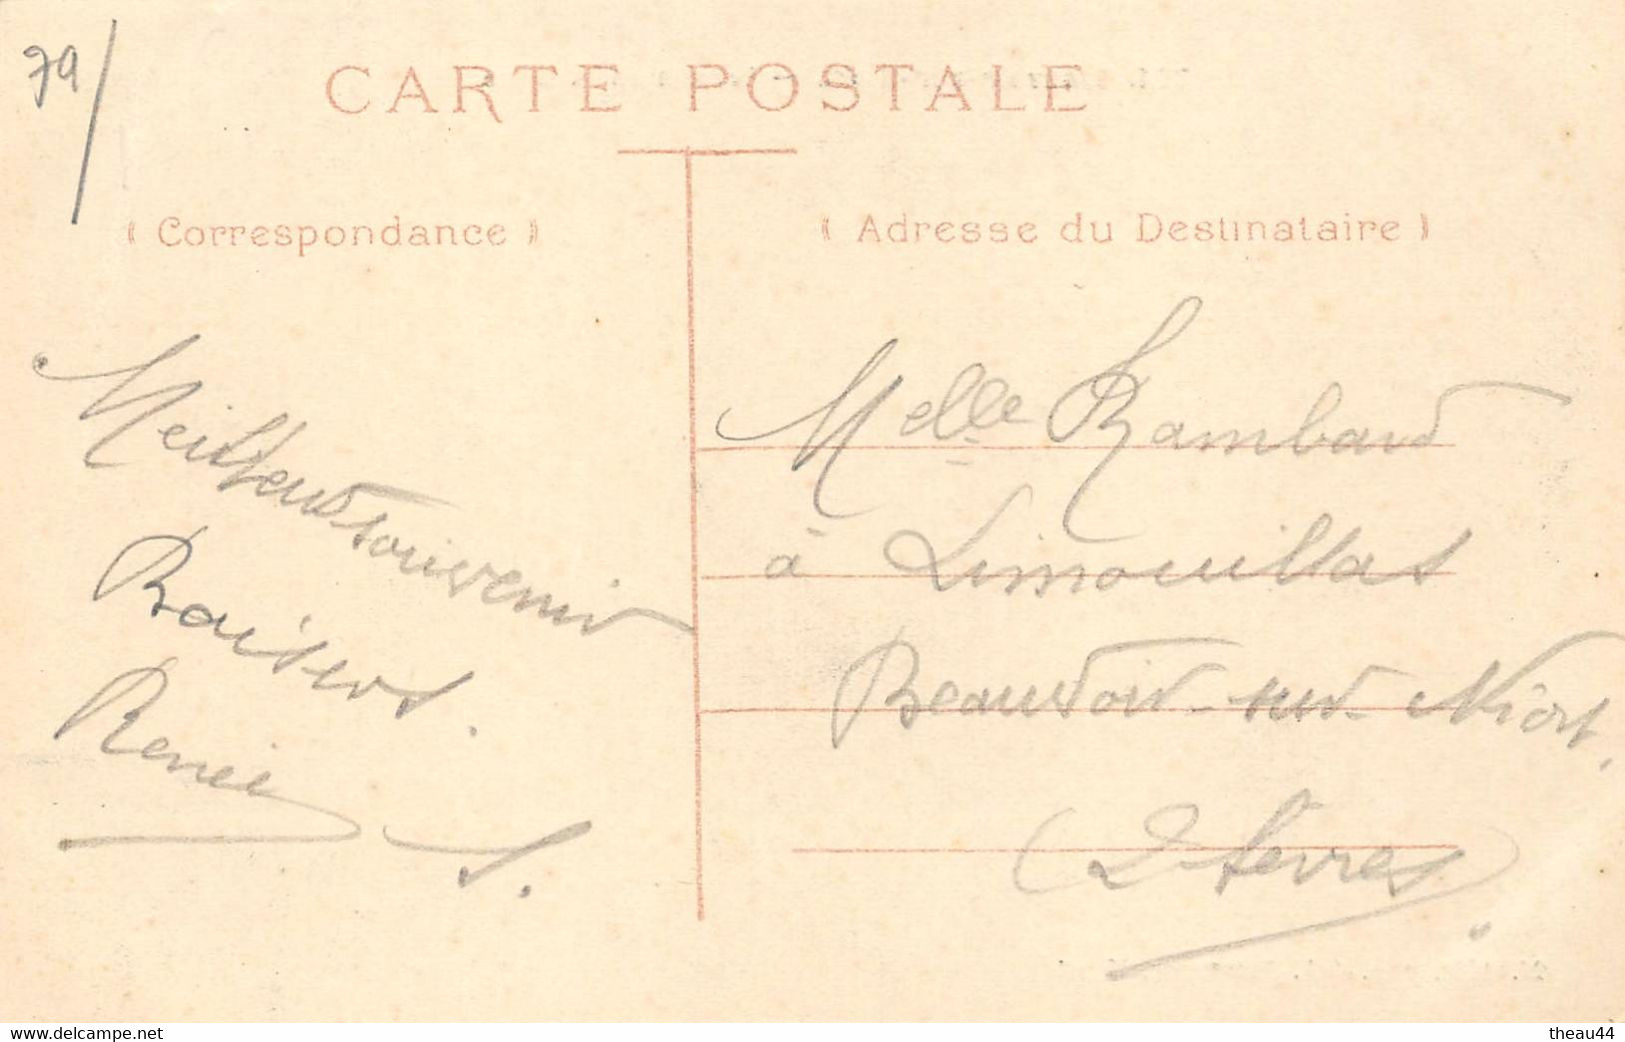 79/
CARTE POSTALE
( Correspondance )
Meilleur souvenir
Baisers.
Renée S.
( Adresse du Destinataire )
Melle Rambaud
à Limouillas
Beauvoir-sur-Niort.
(2 Sèvres)
www.delcampe.net
theau44